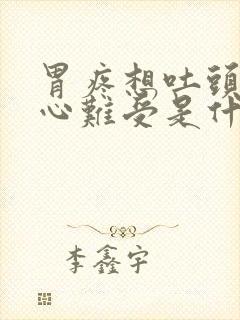 胃疼想吐頭
心難受是什
李鑫宇